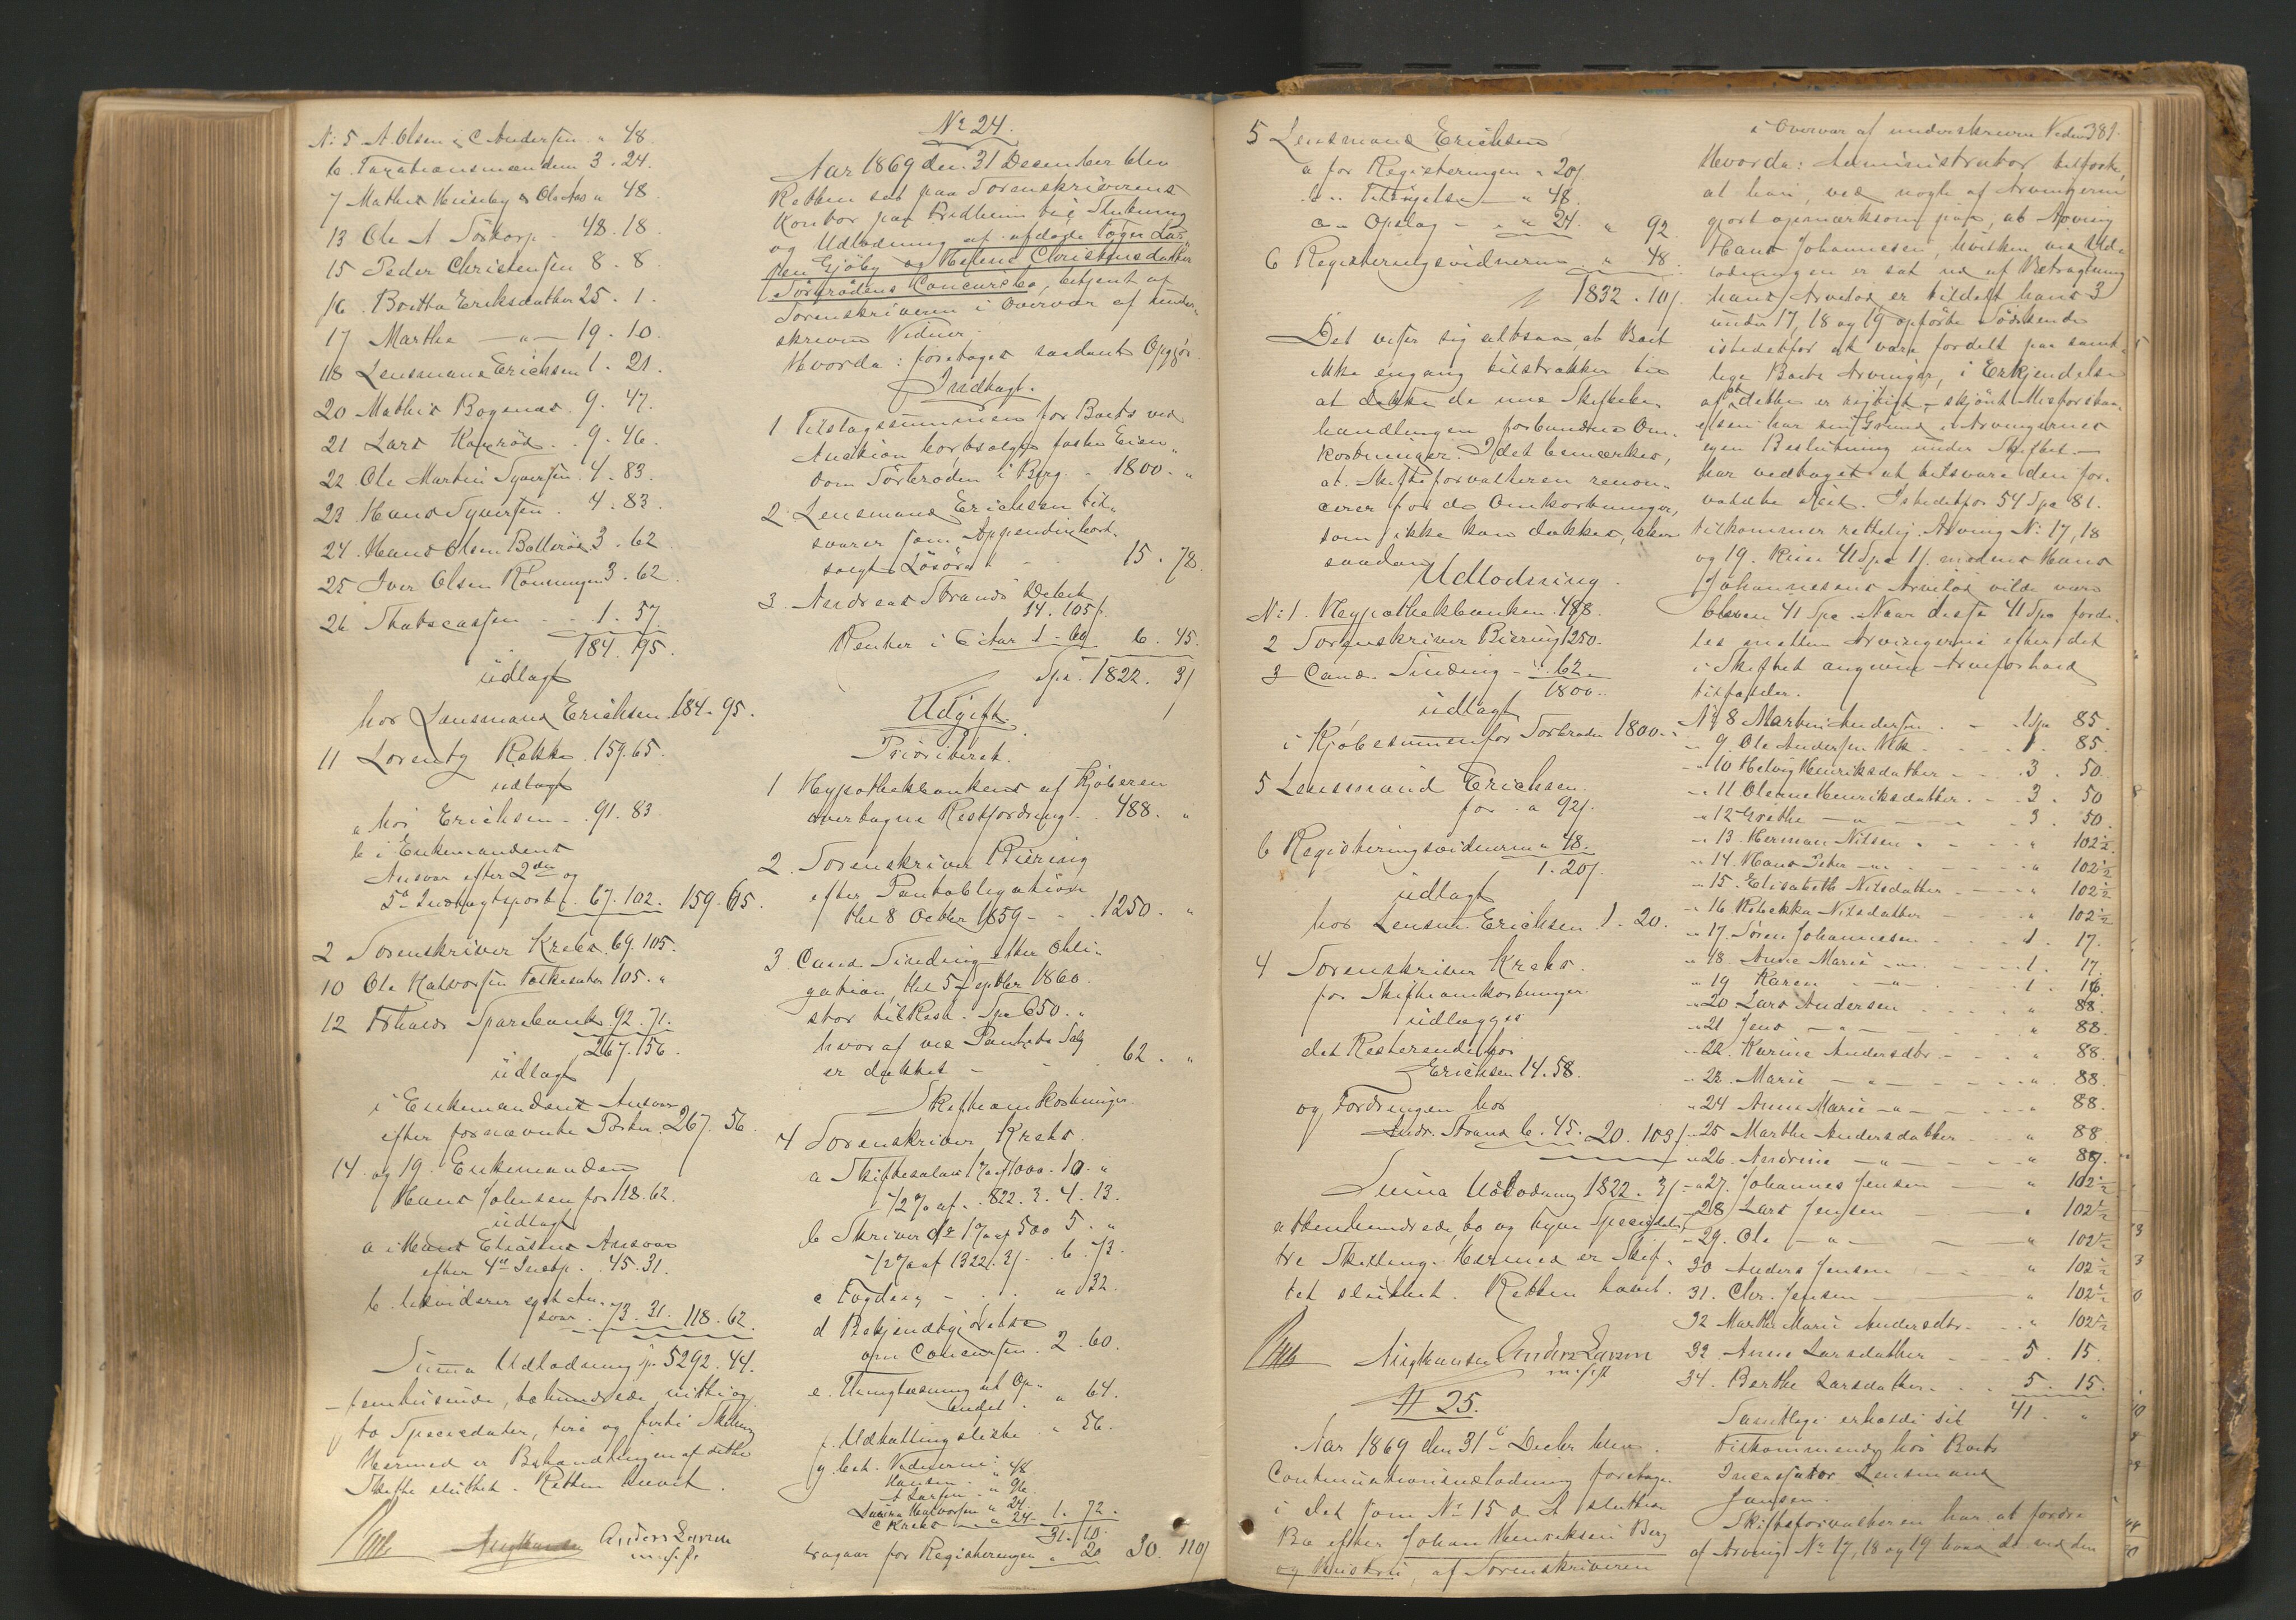 N: 5 A Olsen & C Andersen " 48
6. Taxationsmændene 3. 24.
7 Mathis Huseby & Ole Aas " 48
13 Ole A Törtorp - 48. 18.
15 Peder Christensen 8. 8.
16. Britta Eriksdatter 25. 1.
17 Marthe —"— 19. 10.
18 Lensmand Erichsen 1. 21.
20 Mathis Bogenæs. 9. 47.
21 Lars 9. 46.
22. Ole Martin Syversen. 4. 83.
23. Hans Syversen. 4. 83.
24. Hans Olsen Bollerød 3. 62
25 Iver Olsen Rönningen 3. 62.
26 - - 1. 57.
184. 95.
udlagt
hos Lensmand Erichsen 184. 95.
11 Lorentz Rokke. 159. 65.
udlagt
a hos Erichsen - 91. 83
b i Enkemandens
Ansvar efter 2den og
5te Indtægtspost. 67. 102. 159. 65.
2 Sorenskriver Krebs. 69. 105.
10 Ole Halvorsen 105. "
12 Sparebank. 92. 71.
267. 56.
udlagt
i Enkemandens Ansvar
efter fornævnte Poster. 267. 56.
14. og 19. Enkemanden
Hans Johnsen for 118. 62.
udlagt
a i Hans Eliasens Ansvar
efter 4de Indtp. 45. 31.
b. likviderer eget An-
svar. 73. 31. 118. 62.
Suma Udlodning Sp 5292. 44.
- femtusinde, tohundrede nitti og
to Speciedaler, fire og firti Skilling
Hermed er Behandlingen af dette
Skifte sluttet. Retten hævet.
Anders Larsen
m. f. p.
No 24.
Aar 1869 den 31 December blev
Retten sat paa Sorenskriverens
Kontor paa Fredheim til Slutning
og Udlodning af afdøde Lar-
sen Gjöby og Helene Christensdatter
Törbrödens Concursbo, betjent af
Sorenskriveren i Overvær af under-
skrevne Vidner.
Hvorda: foretoges saadant Opgjör.
Indtægt.
1 Tilslagssummen for Boets ved
Auktion bortsolgte faste Eien-
dom Törbroden i Berg. - 1800. "
2. Lensmand Erichsen til-
svarer som bort-
solgt Lösöre - 15. 78.
3. Andreas Strands Debet
14. 105/.
Renter i 6 Aar 1. 60 6. 45.
Spd. 1822. 3/
Udgift.
Prioriteret.
1 Hypothekbankens af Kjöberen
overtagne Restfordring - 488. "
2. Sorenskriver Biering
efter Pantobligation
dtl 8 Octbr 1859 - - 1250. "
3. Cand. Sinding efter Obli-
gation, dtl 5 Septbr 1860.
stor til Rest. Spd 650. "
hvoraf ved Pantets Salg
er dækket - - 62. "
Skifteomkostninger.
4 Sorenskriver Krebs.
a Skiftesalær 1% af 1000. 10. "
1/2% af 822. 3. 4. 13.
b Skriver do 1% af 500 5. "
1/2% af 1322. 3/. 6. 73.
c Fogden - . . " 32.
d Bekjendtgjörelse
om Concursen. 2. 60.
e. Thinglæsning at Op-
budet. " 64.
f. Udkalling " 56.
g bet. Vidnerne:
Hansen - " 48
A Larsen - " 96.
Halvorsen " 24.
C Krebs — " 24. 1. 72.
31. 10.
fragaar for Registreringen " 20 30. 110/
5 Lensmand Erichsen
a for Registeringen " 20/.
b " — " 48.
c " Opslag - " 24. " 92.
6 Registeringsvidnerne " 48.
1832. 10/.
Det viser sig altsaa, at Boet
ikke engang tilstrækker til
at dække de med Skiftebe-
handlingen forbundne Om-
kostninger. Idet bemærkes,
at Skifteforvalteren renon-
cerer for de Omkostninger,
som ikke kan dækkes, skeer
saadan Udlodning.
N: 1. Hypothekbanken. 488.
2 Sorenskriver Biering 1250.
3 Cand. Sinding - 62
1800.
udlagt
i Kjöbesummen for Törbroden 1800.
5 Lensmand Erichsen.
for. " 92/.
6 Registeringsvidnerne " 48.
1. 20/.
udlagt
hos Lensm. Erichsen 1. 20.
4 Sorenskriver Krebs.
for Skifteomkostninger.
udlægges
det Resterende hos
Erichsen 14. 58.
og Fordringen hos
Andr. Strand 6. 45. 20. 103/
Suma Udlodning 1822. 3/
attenhundrede, to og tyve Speciedaler
tre Skilling. Hermed er Skif-
tet sluttet. Retten hævet.
Anders Larsen
m. f. p.
N 25.
Aar 1869 den 31te Decbr blev
Continuationsudlodning foretagen
i det som No 15 d. A sluttede
Bo efter Johan Henriksen Berg
og Hustru, af Sorenskriveren
i Overvær af underskrevne Vidner 381.
Hvorda: Administrator tilförte,
at han, ved nogle af Arvingerne
gjort opmærksom paa, at Arving
Hans Johannesen, hvilken ved Ud-
lodningen er sat ud af Betragtning
hans Arvelod er tildelt hans 3
under 17, 18 og 19 opförte Södskende
istedetfor at være fordelt paa samt-
lige Boets Arvinger, i Erkjendelse
af at dette er rigtigt, skjönt Misforstaa-
elsen har sin Grund i Arvingernes
egen Beslutning under Skiftet -
har vedtaget at tilsvare den for-
voldte Feil. Istedetfor 54 Spd 81.
tilkommer rettelig Arving N: 17, 18
og 19. Kun 41 Spd 1/. medens Hans
Johannesens Arvelod vilde være
bleven 41 Spd. Naar disse 41 Spd forde-
les mellem Arvingerne efter det
i Skiftet angivne Arveforhold
tilfalder.
No 8 Martin Andersen - 1 Spd 85.
" 9. Ole Andersen - - 1. 85.
" 10 Helvig Henriksdatter - - 3. 50.
" 11 Oleane Henriksdatter. - 3. 50
" 12 Grethe —"— - 3. 50.
" 13 Herman Nilsen. - " 102½.
" 14. Hans Peter —"— " 102½
" 15. Elisabeth Nilsdatter - " 102½
" 16. Rebekka Nilsdatter - " 102½
" 17. Sören Johannesen - 1. 17.
" 18. Anne Marie —"— 1. 17.
" 19 Karen —"— 1. 16.
" 20 Lars Andersen " 88.
" 21 Jens —"— " 88.
" 22. Karine Andersdtr. - " 88.
" 23. Marie —"— " 88.
" 24 Anne Marie —"— " 88.
" 25 Marthe Andersdatter " 88
" 26. Andrine —"— " 87.
" 27. Johannes Jensen — " 102½
" 28 Lars Jensen " 102½
" 29. Ole —"— " 102½
30 Anders Jensen " 102½
31. Chr. Jensen — " 102½
32 Marthe Marie Andersdtr. " 102½
33. Anne Larsdatter - 5. 15.
34. Berthe Larsdatter. - 5. 15.
Samtlige erholde sit 41. "
Tilkommende hos Boets
Incassator Lensmand
Jansen.
Skifteforvalteren har at fordre
af Arving No 17, 18 og 19 hvad de ved den